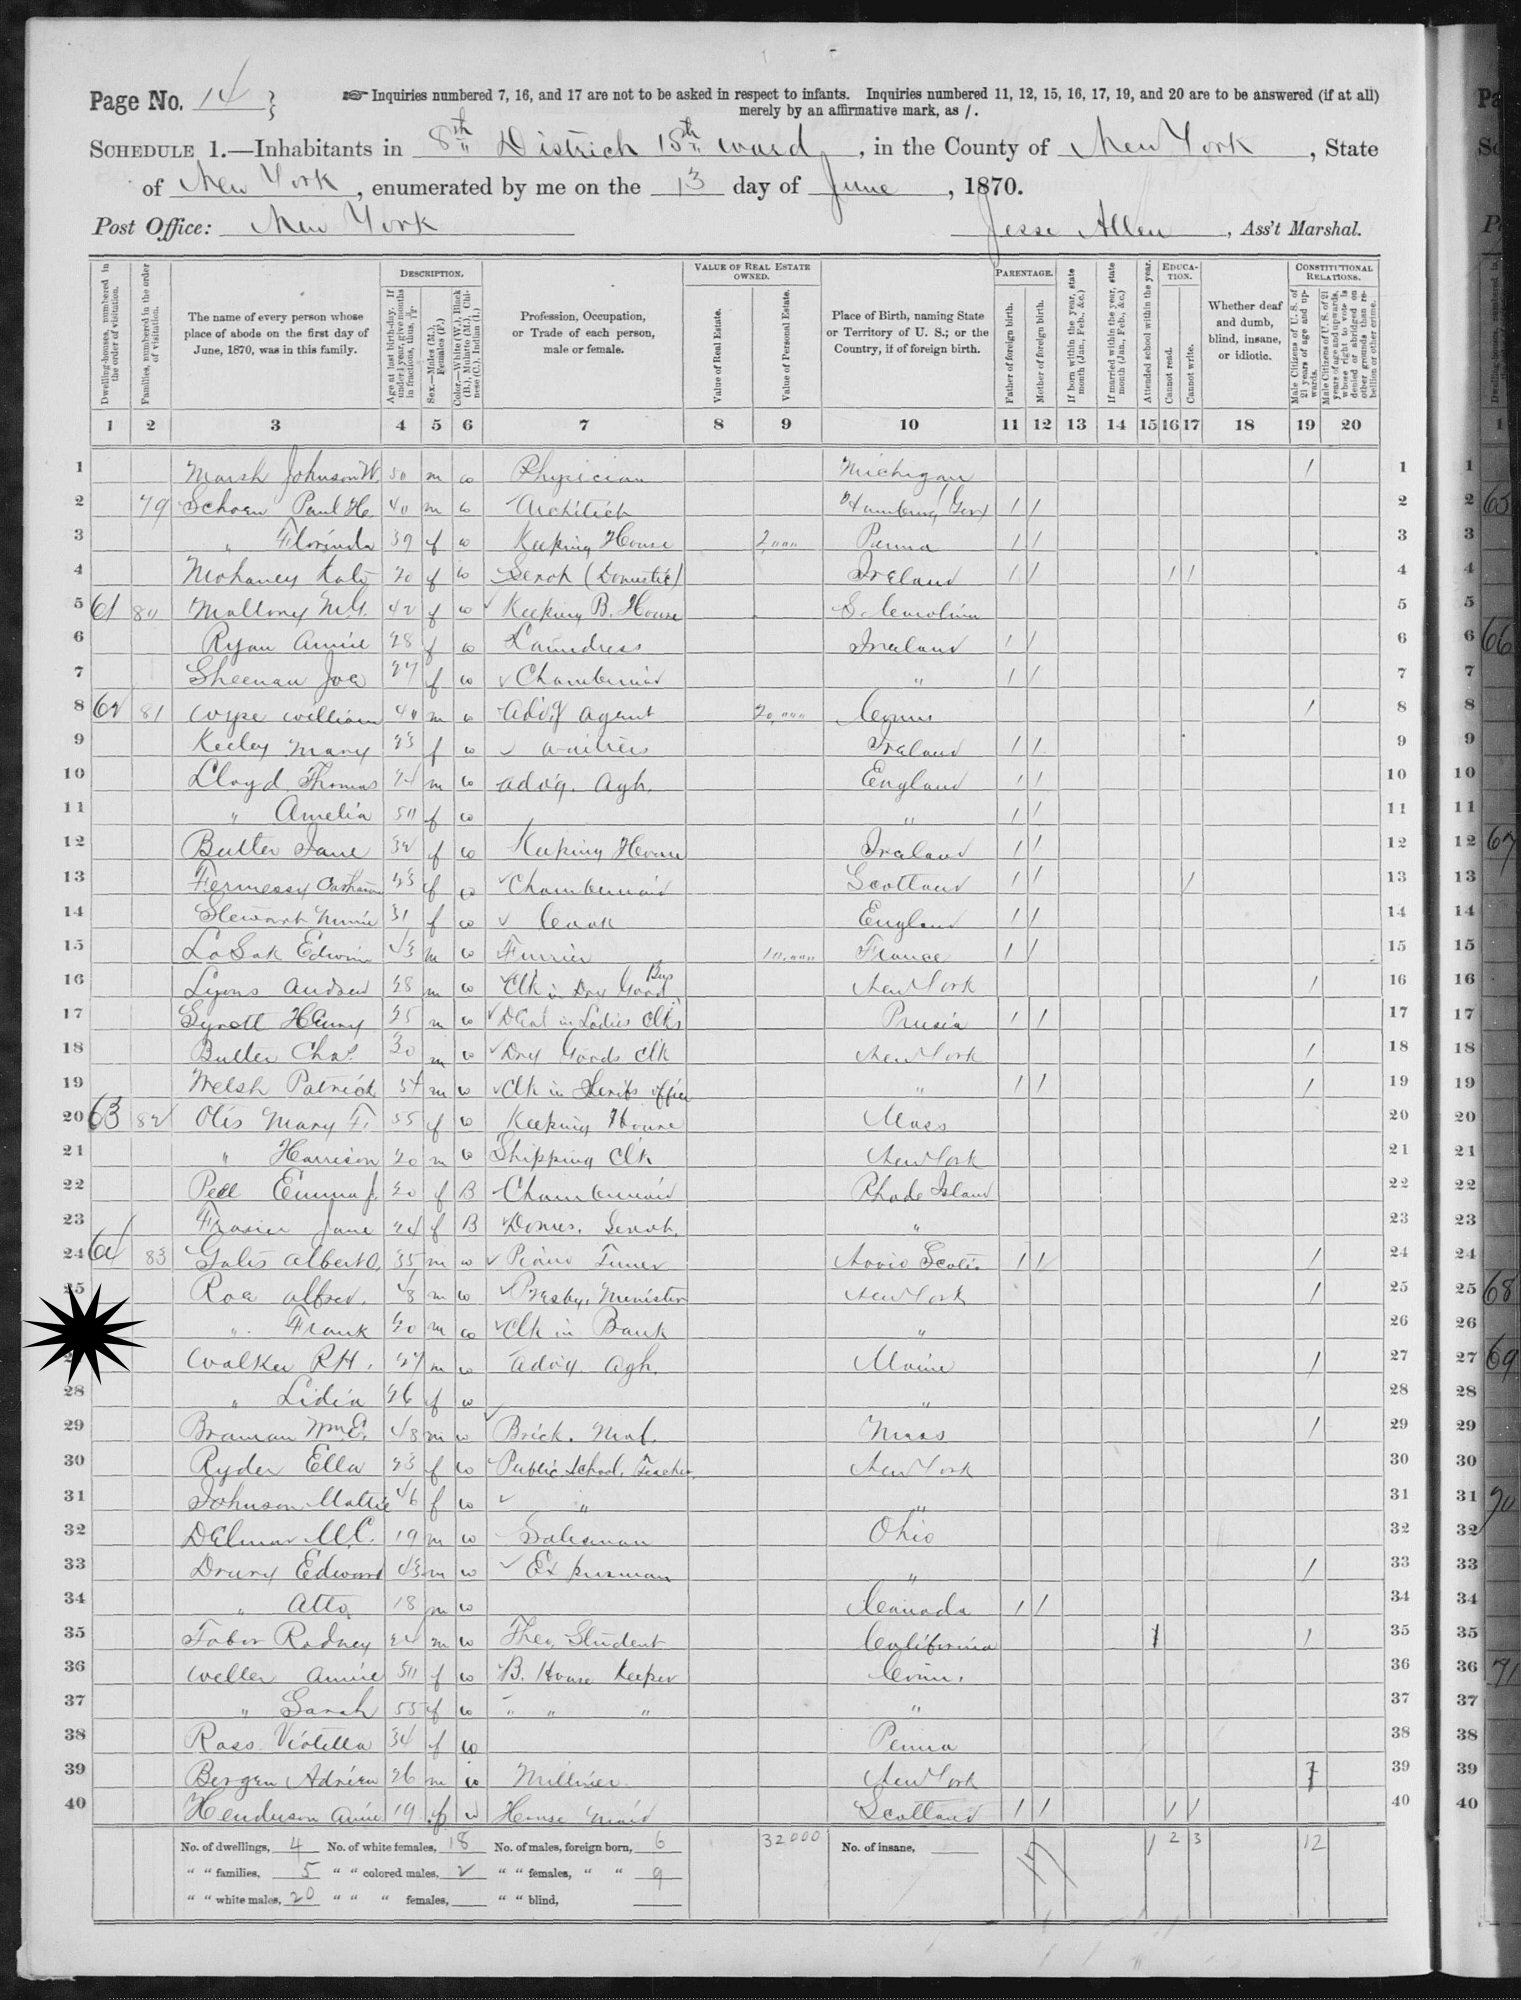 Page No. 14
Inquiries numbered 7, 16, and 17 are not to be asked in respect to infants. Inquiries numbered 11, 12, 15, 16, 17, 19, and 20 are to be answered (if at all)
merely by an affirmative mark, as /.
SCHEDULE 1.—Inhabitants in 8th District 15th ward, in the County of New York, State
of New York, enumerated by me on the 13 day of June, 1870.
Post Office: New York Jesse Allen, Ass't Marshal.
Dwelling-houses, numbered in the order of visitation.
Families, numbered in the order of visitation.
The name of every person whose place of abode on the first day of June, 1870, was in this family.
DESCRIPTION.
Age at last birth-day. If under 1 year, give months in fractions, thus, 3/12.
Sex.—Males (M.), Females (F.)
Color.—White (W.), Black (B.), Mulatto (M.), Chinese (C.), Indian (I.)
Profession, Occupation, or Trade of each person, male or female.
VALUE OF REAL ESTATE OWNED.
Value of Real Estate.
Value of Personal Estate.
Place of Birth, naming State or Territory of U. S.; or the Country, if of foreign birth.
PARENTAGE.
Father of foreign birth.
Mother of foreign birth.
If born within the year, state month (Jan., Feb., &c.)
If married within the year, state month (Jan., Feb., &c.)
EDUCATION.
Attended school within the year.
Cannot read.
Cannot write.
Whether deaf and dumb, blind, insane, or idiotic.
CONSTITUTIONAL RELATIONS.
Male Citizens of U. S. of 21 years of age and upwards.
Male Citizens of U. S. of 21 years of age and upwards, whose right to vote is denied or abridged on other grounds than rebellion or other crime.
1 2 3 4 5 6 7 8 9 10 11 12 13 14 15 16 17 18 19 20
1 Marsh Johnson W. 50 m w Physician Michigan / 1
2 79 Schoen Paul H. 40 m w Architect Hamburg / / 2
3 " Florinda 39 f w Keeping House 2,000 Penna / / 3
4 Mohaney Kate 20 f w Servt (Domestic) Ireland / / / / 4
5 61 80 Mallony 42 f w Keeping B. House S. Carolina 5
6 Ryan Annie 28 f w Laundress Ireland / / 6
7 Sheenan 27 f w Chambermaid " / / 7
8 62 81 William 40 m w Adv'g Agent 20,000 Conn / 8
9 Keeley Mary 23 f w Ireland / / 9
10 Lloyd Thomas 24 m w Adv'g. Agt. England / / 10
11 " Amelia 50 f w " / / 11
12 Butler Jane 32 f w Keeping House Ireland / / 12
13 23 f w Chambermaid Scotland / / / 13
14 Stewart 31 f w Cook England / / 14
15 Edwin 43 m w Furrier 10,000 France / / 15
16 Lyons Andrew 28 m w Clk in Dry Good Bus New York / 16
17 Henry 25 m w in Ladies Clks Prusia / / 17
18 Butler Chas. 30 m w Dry Goods Clk New York / 18
19 Welsh Patrick 54 m w Clk in Sherifs office " / / / 19
20 63 82 Otis Mary F. 55 f w Keeping House Mass 20
21 " Harrison 20 m w Shipping Clk New York 21
22 Pell Emma J. 20 f B Chambermaid Rhode Island 22
23 Frasier Jane 24 f B Domes. Servt. " 23
24 64 83 Gates Albert O. 35 m w Piano Tuner Novio Scotia / / / 24
25 Roe Alfred. 48 m w Presby. Minister New York / 25
" Frank 20 m w Clk in Bank " 26
Walker R H. 27 m w Adv'g. Agt. Maine / 27
28 " Lidia 26 f w " 28
29 Braman Wm E. 48 m w Brick. Mat. Mass / 29
30 Ryder Ella 23 f w Public School Teacher New York 30
31 Johnson Mattie 46 f w " " 31
32 Delmar M.C. 19 m w Salesman Ohio 32
33 Drury Edward 43 m w Expressman " / 33
34 " Atto 18 m w Canada / / 34
35 Tabor Rodney 24 m w Theo. Student California / / 35
36 Weller Annie 50 f w B. House Keeper Conn. 36
37 " Sarah 55 f w " " " " 37
38 Ross Violetta 34 f w Penna 38
39 Bergen Adrien 26 m w Milliner New York / 39
40 Henderson Annie 19 f w House Maid Scotland / / / / 40
No. of dwellings, 4 No. of white females, 18 No. of males, foreign born, 6 32000 No. of insane, 17 1 2 3 12
" " families, 5 " " colored males, 2 " " females, " " 9
" " white males, 20 " " " females, " " blind,